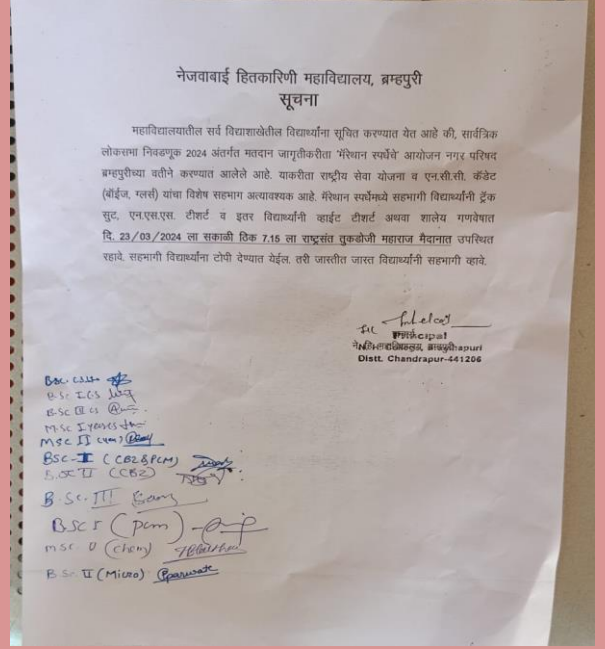 नेजवाबाई हितकारिणी महाविद्यालय, ब्रम्हपुरी
सूचना
महाविद्यालयातील सर्व विद्याशाखेतील विद्यार्थ्यांना सूचित करण्यात येत आहे की, सार्वत्रिक
लोकसभा निवडणूक 2024 अंतर्गत मतदान जागृतीकरीता 'मॅरेथान स्पर्धेचे' आयोजन नगर परिषद
ब्रम्हपुरीच्या वतीने करण्यात आलेले आहे. याकरीता राष्ट्रीय सेवा योजना व एन.सी.सी. कॅडेट
(बॉईज, ग्लर्स) यांचा विशेष सहभाग अत्यावश्यक आहे. मॅरेथान स्पर्धेमध्ये सहभागी विद्यार्थ्यांनी ट्रॅक
सुट, एन.एस.एस. टीशर्ट व इतर विद्यार्थ्यांनी व्हाईट टीशर्ट अथवा शालेय गणवेषात
दि. 23/03/2024 ला सकाळी ठिक 7.15 ला राष्ट्रसंत तुकडोजी महाराज मैदानात उपस्थित
रहावे. सहभागी विद्यार्थ्यांना टोपी देण्यात येईल. तरी जास्तीत जास्त विद्यार्थ्यांनी सहभागी व्हावे.
Principal
Distt. Chandrapur-441206
B.Sc I CS
B.Sc III CS
M.Sc I
MSC II
BSC-I (CBZ & PCM)
II (CBZ)
B.Sc. III
BSC I (pcm)
msc II (chem)
B.Sc II (Micro) Pparwate